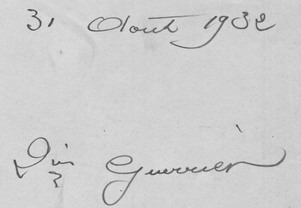 31 Aout 1932
Guerrier